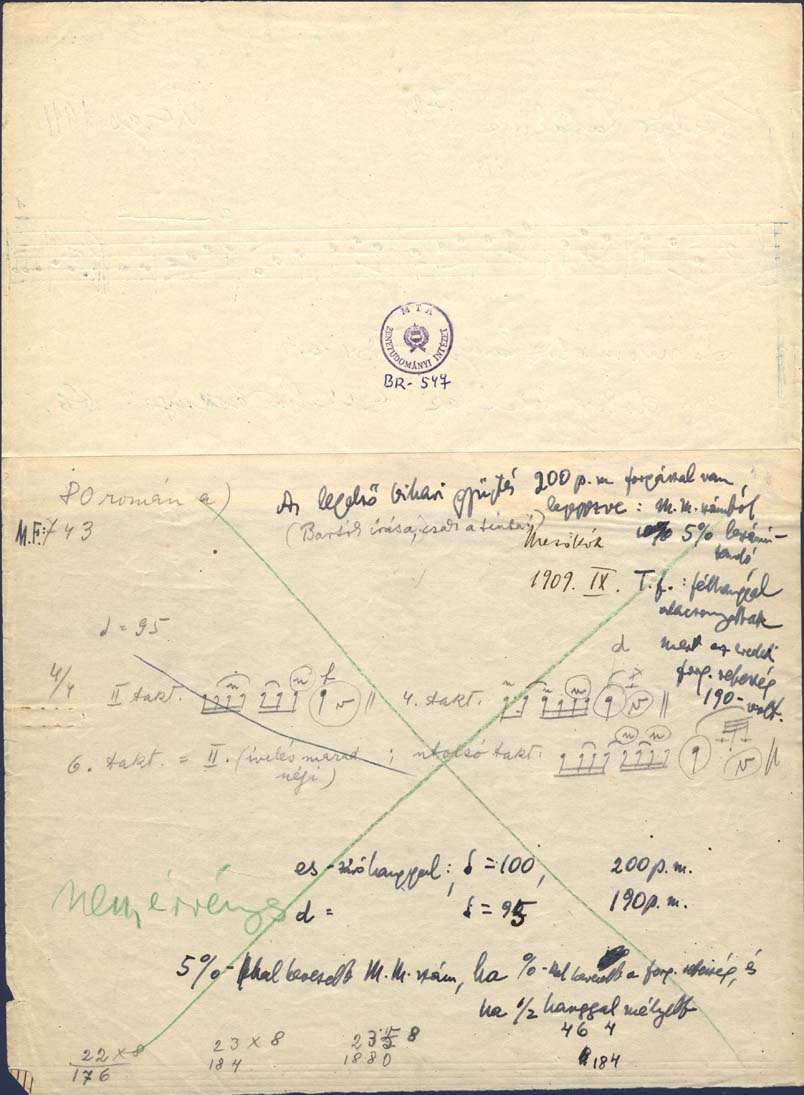 MTA
ZENETUDOMÁNYI INTÉZET
BR-547
80 román a)
Az legelső bihari gyűjtés 200 p.m. forgással van
: M.M. számból
M.F. 743
(Bartók írása, csak a tinta!)
5% leszámí-
tandó,
1909. IX. T.f.: félhanggal
alacsonyabbak
♪ = 95.
d mert az eredeti
forg. sebesség
190 volt.
4/4 II takt. 4. takt.
6. takt. = II. (ívelés marad
régi) ; utolsó takt.
es-záróhanggal: ♪ = 100, 200 p.m.
nem érvényes
d = ♪ = 95 190 p.m.
5%-kal kevesebb M.M. szám, ha %-kal kevesebb a forg. sebesség, és
ha 1/2 hanggal mélyebb
22 x 8 23 x 8 8 46 4
176 184 1880 184